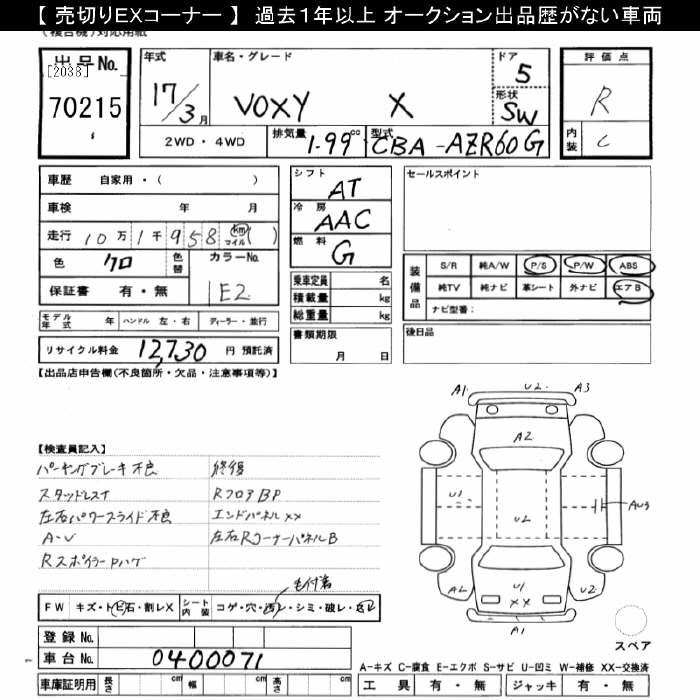 【 売切りEXコーナー 】 過去1年以上 オークション出品歴がない車両
(複合機)対応用紙
出品No.
[2038]
70215
年式
17/3月
車名・グレード
VOXY X
ドア
5
形状
SW
2WD・4WD
排気量
1.99cc
型式
CBA-AZR60G
評価点
R
内装
C
車歴 自家用・( )
車検 年 月
走行 10万1千958 km マイル ( )
色 クロ
色替
カラーNo.
1E2
保証書 有・無
シフト
AT
冷房
AAC
燃料
G
乗車定員 名
積載量 kg
総重量 kg
書類期限
月 日
セールスポイント
装備品
S/R 純A/W P/S P/W ABS
純TV 純ナビ 革シート 外ナビ エアB
ナビ型番:
後日品
モデル年式 年 ハンドル 左・右 ディーラー・並行
リサイクル料金 12,730 円 預託済
【出品店申告欄(不良箇所・欠品・注意事項等)】
【検査員記入】
パーキングブレーキ不良
スタッドレス
左右パワースライド不良
A-V
Rスポイラーハゲ
修復
RフロアBP
エンドパネルXX
左右RコーナーパネルB
A1 U2 A3
A2
U1
U2
A2 U1 U2
XX
A1
スペア
FW キズ・トビ石・割レX
シート内装 コゲ・穴・汚レ・シミ・破レ・
登録No.
車台No.
0400071
車庫証明用 長さ cm 幅 cm 高さ cm
A-キズ C-腐食 E-エクボ S-サビ U-凹ミ W-補修 XX-交換済
工具 有・無 ジャッキ 有・無